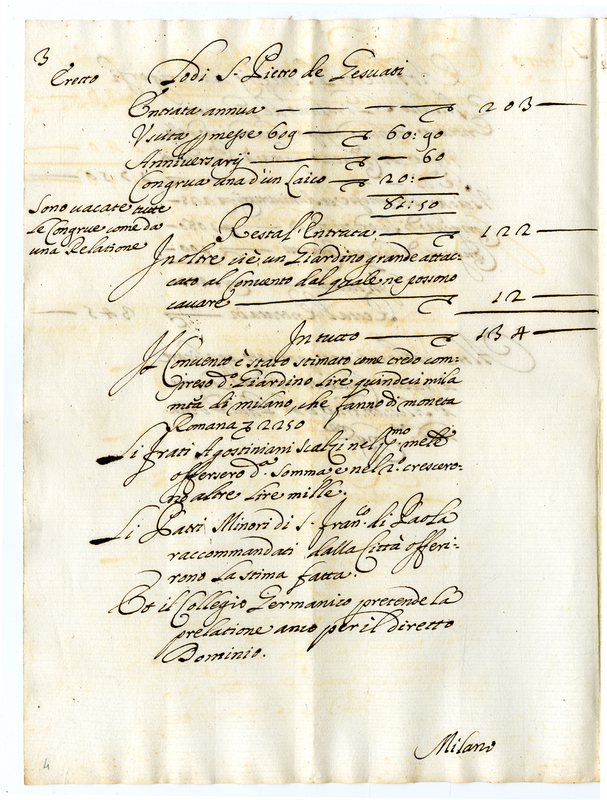 3
Eretto Lodi S. Pietro de Gesuati
Entrata annua — — — 203 —
Uscita p messe 609 — 60:90
Anniversarij — — 60
Congrua ana d'un Laico — 20:—
81:50
Sono vacate tutte
le Congrue come da
una Relatione
Resta l'Entrata — 122 —
In oltre vi è un Giardino grande attac-
cato al Convento dal quale ne possono
cavare — 12 —
In tutto — 134 —
Il Convento è stato stimato come credo com-
preso d.o Giardino lire quindeci mila
mta di milano, che fanno di moneta
Romana 2250
Li frati Agostiniani Scalzi nel pmo
offersero d.a somma e nel 2.o crescero-
no altre lire mille.
Li Patri Minori di S. Fran.co di Paola
raccommandati dalla Città offeri-
rono la stima fatta.
Et il Collegio Germanico pretende la
prelatione anco per il diretto
Dominio.
Milano
4